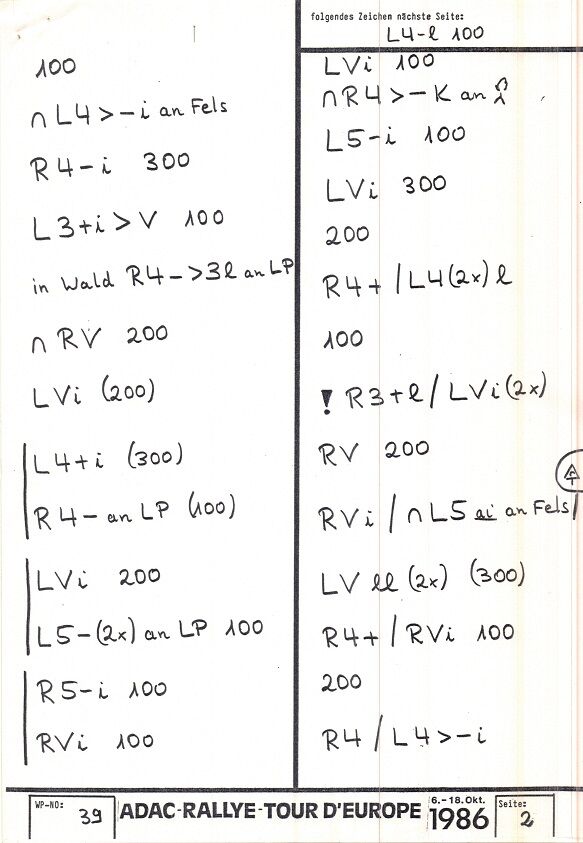 100
∩ L4 > - i an Fels
R4 - i 300
L3 + i > V 100
in Wald R4 - > 3l an LP
∩ RV 200
LVi (200)
L4 + i (300)
R4 - an LP (100)
LVi 200
L5 - (2x) an LP 100
R5 - i 100
RVi 100
folgendes Zeichen nächste Seite:
L4-l 100
LVi 100
∩ R4 > - K an
L5 - i 100
LVi 300
200
R4 + / L4 (2x) l
100
! R3 + l / LVi (2x)
RV 200
RVi / ∩ L5 ai an Fels /
LV ll (2x) (300)
R4 + / RVi 100
200
R4 / L4 > - i
WP-NO: 39
ADAC-RALLYE-TOUR D'EUROPE
6.-18. Okt. 1986
Seite: 2